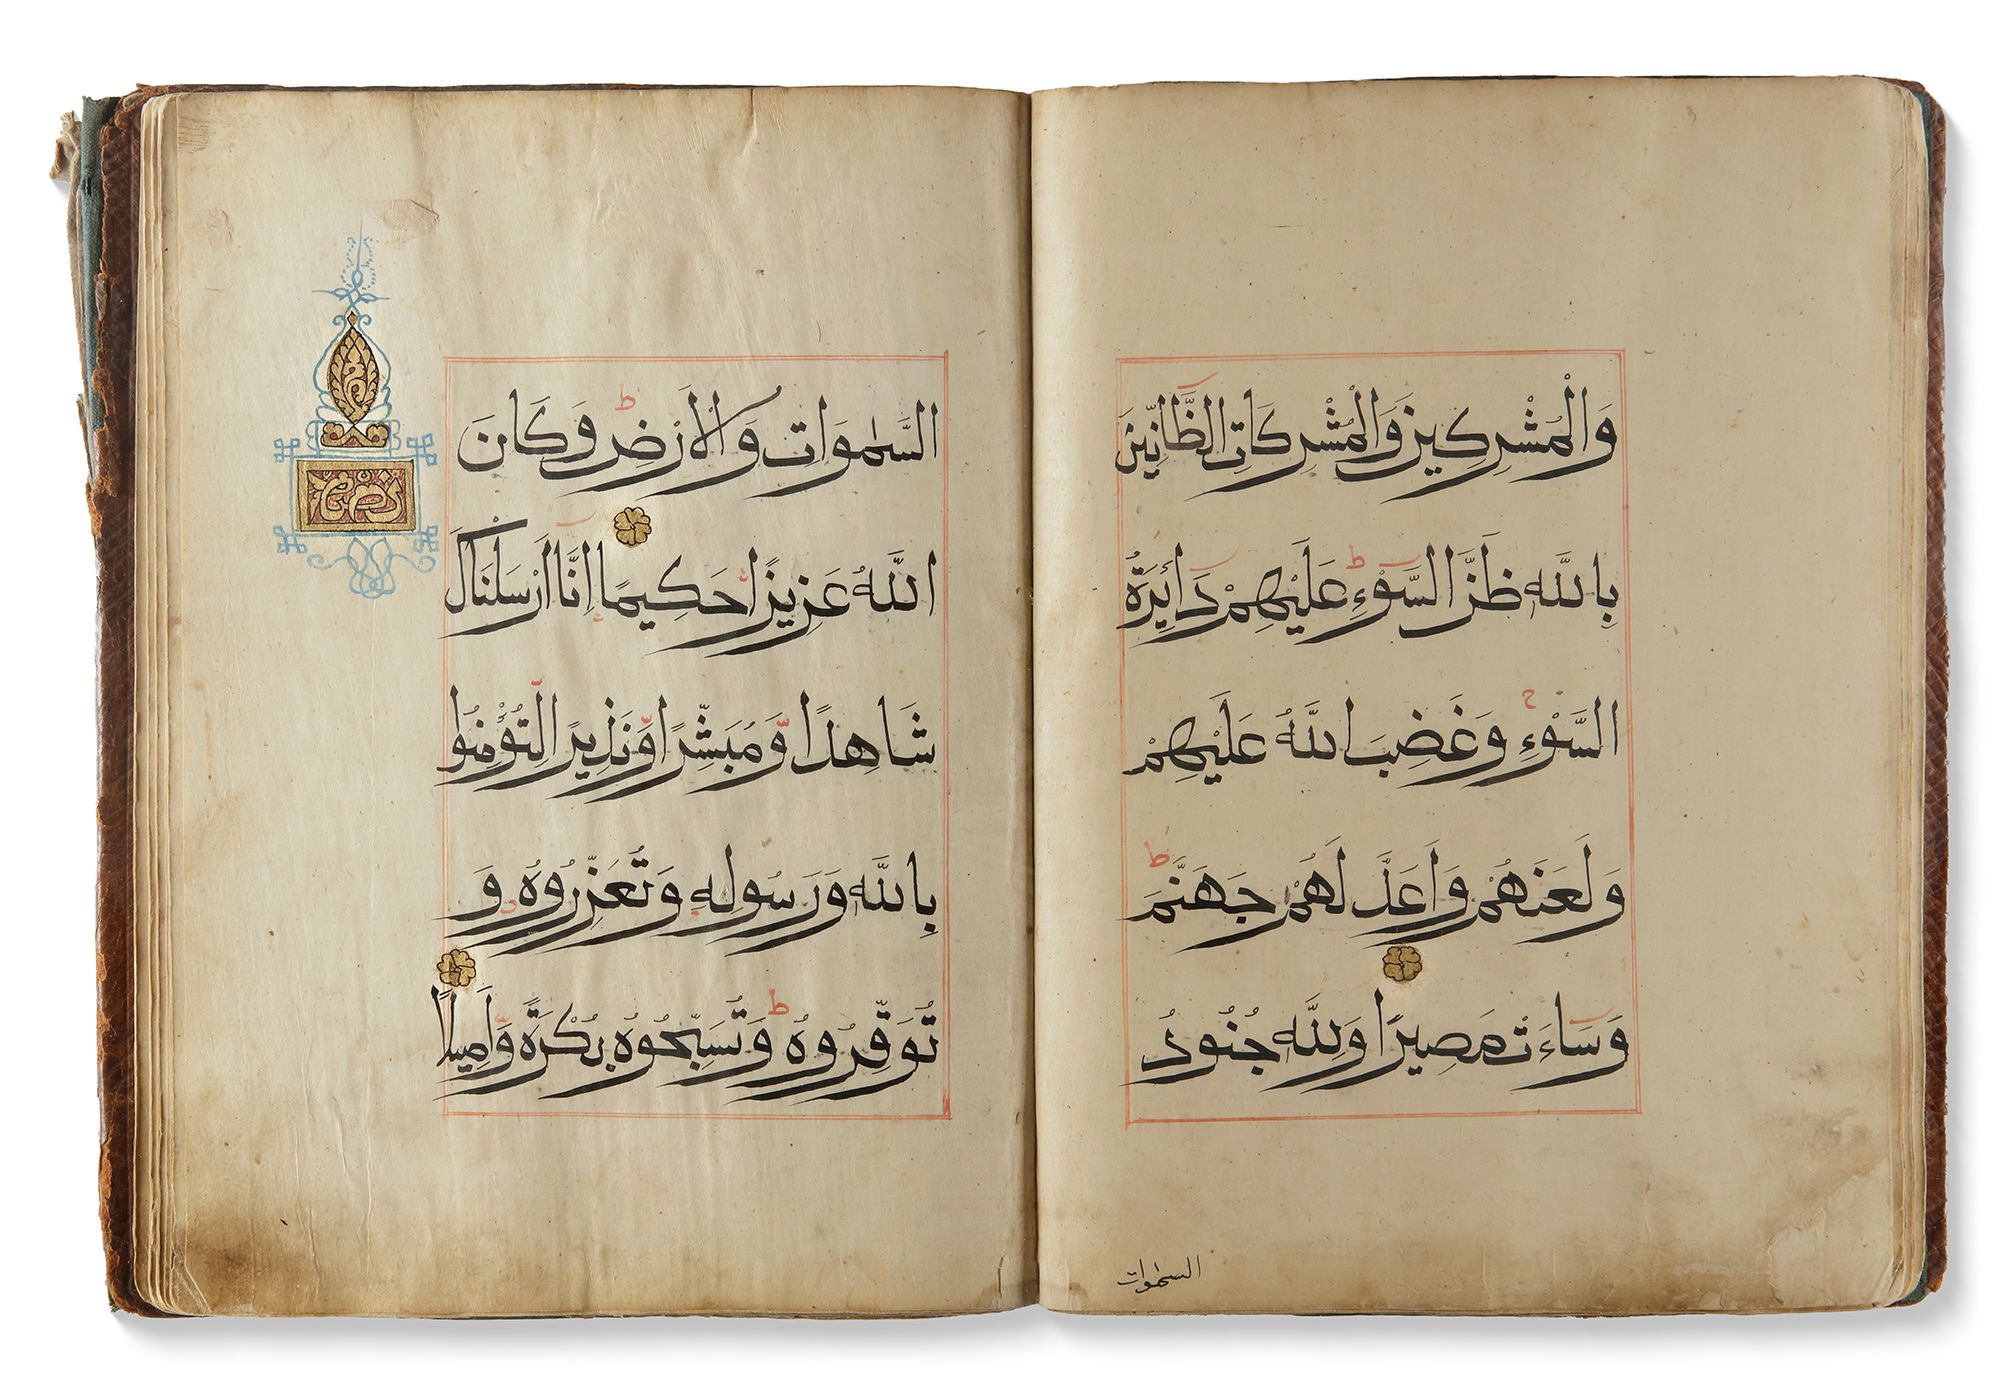 وَالْمُشْرِكِينَ وَالْمُشْرِكَاتِ الظَّانِّينَ
بِاللَّهِ ظَنَّ السَّوْءِ عَلَيْهِمْ دَائِرَةُ
السَّوْءِ وَغَضِبَ اللَّهُ عَلَيْهِمْ
وَلَعَنَهُمْ وَاَعَدَّ لَهُمْ جَهَنَّمَ
وَسَاءَتْ مَصِيرًا وَلِلَّهِ جُنُودُ
السموات
السَّمٰوَاتِ وَالْاَرْضِ وَكَانَ
اللَّهُ عَزِيزًا حَكِيمًا اِنَّا اَرْسَلْنَاكَ
شَاهِدًا وَّمُبَشِّرًا وَّنَذِيرًا لِّتُؤْمِنُوا
بِاللَّهِ وَرَسُولِهِ وَتُعَزِّرُوهُ وَ
تُوَقِّرُوهُ وَتُسَبِّحُوهُ بُكْرَةً وَّاَصِيلًا